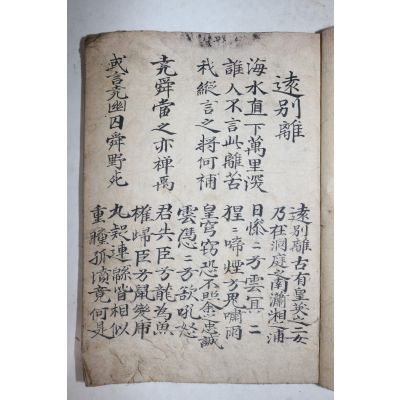 遠別離
海水直下萬里深
誰人不言此離苦
我縱言之將何補
堯舜當之亦禅禹
或言堯幽囚舜野死
遠別離古有皇英之二女
乃在洞庭之南瀟湘之浦
日慘〻兮雲冥〻
猩〻啼煙兮鬼嘯雨
皇穹竊恐不照余之忠誠
雲憑〻兮欲吼怒
君失臣兮龍為魚
權歸臣兮鼠變虎
九疑連緜皆相似
重瞳孤墳竟何是